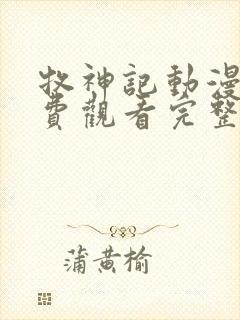 牧神記動漫
費觀看完整
蒲黄榆